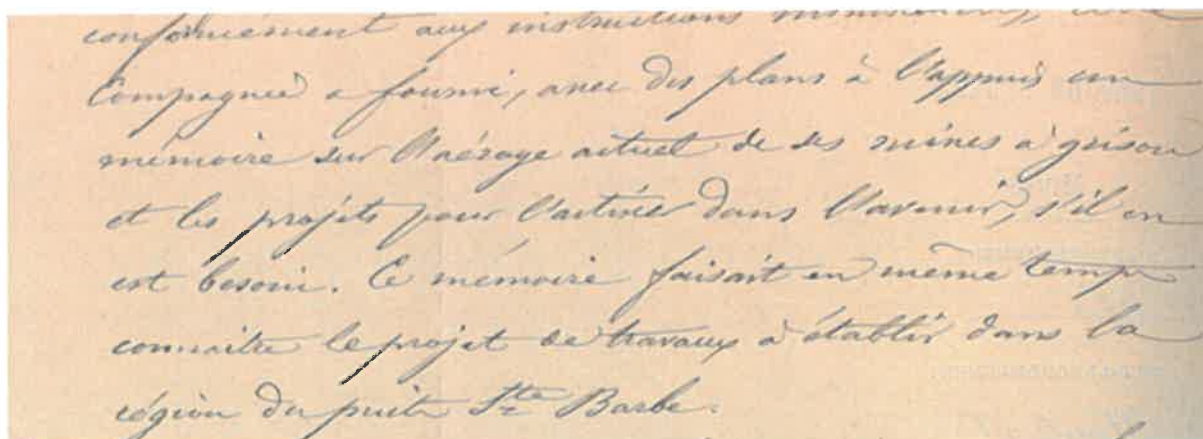 conformément aux instructions ministérielles,
Compagnie a fourni, avec des plans à l'appui un
mémoire sur l'aérage actuel de ses mines à grisou
et les projets pour l'activer dans l'avenir, s'il en
est besoin. Ce mémoire faisait en même temps
connaître le projet de travaux à établir dans la
région du puits Ste Barbe.